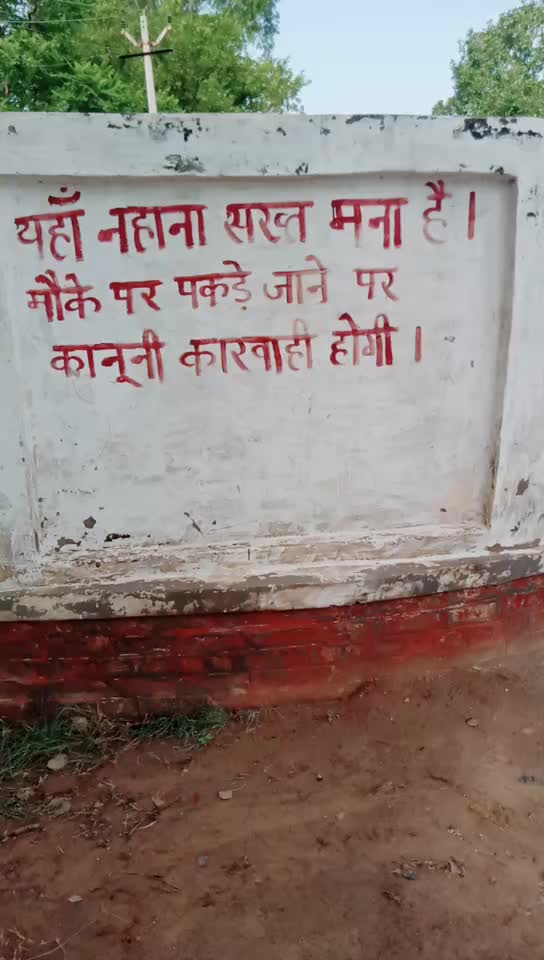 यहाँ नहाना सख्त मना है ।
मौके पर पकड़े जाने पर
कानूनी कारवाही होगी ।